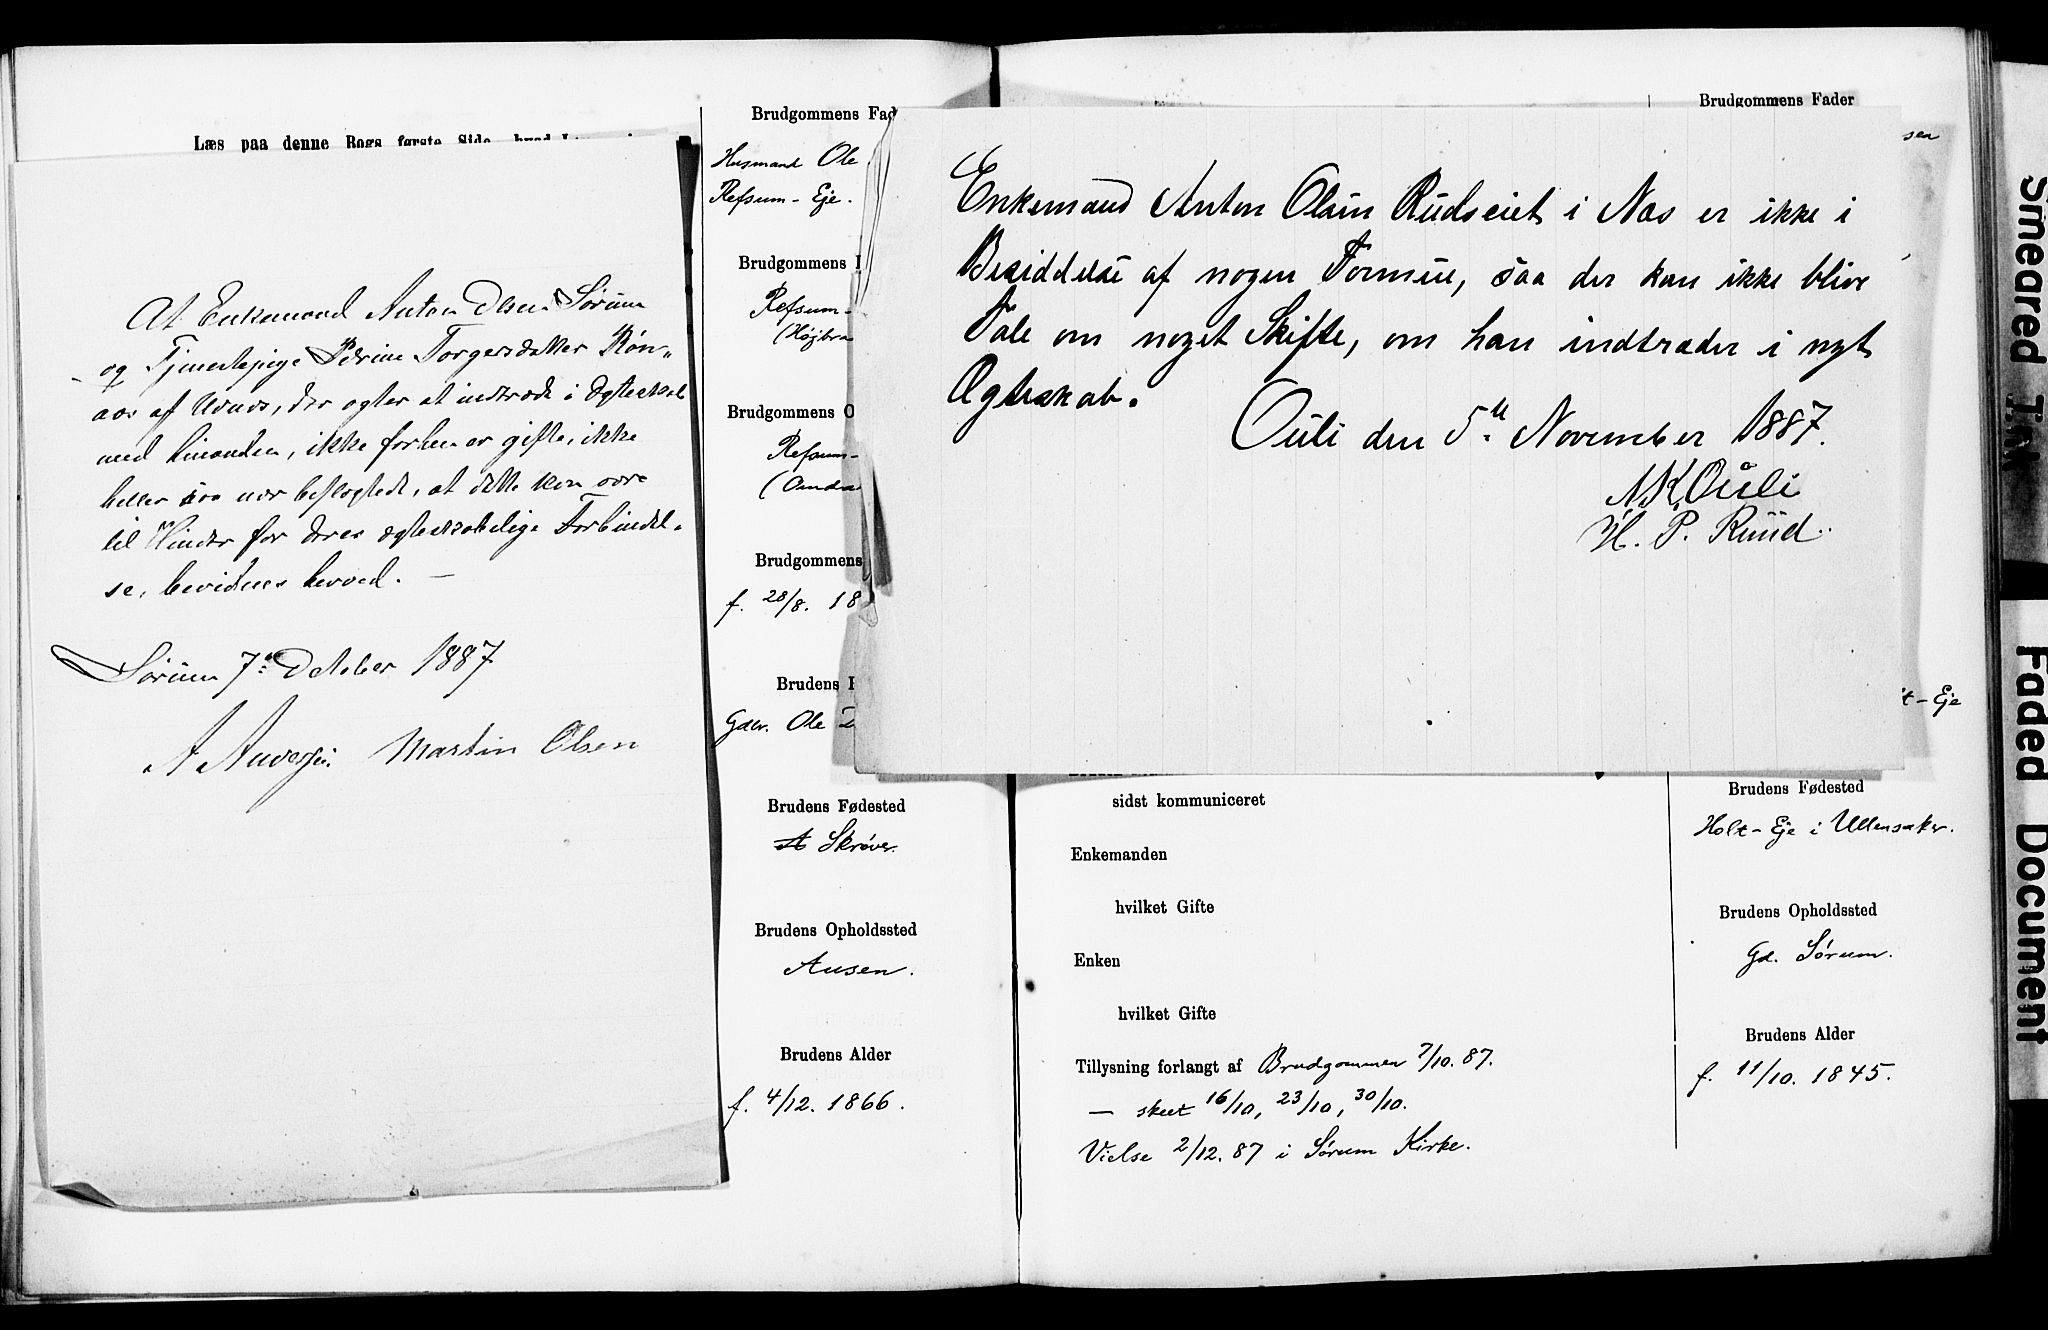 Læs paa denne Bogs første Side, hvad
At Enkemand Anton Olsen Sørum
og Tjenestepige Perine Torgersdatter Røn„
aas af Udnæs, der agter at indtræde i Ægteskab
med hinanden, ikke forhen er gifte, ikke
heller saa nær beslægtede, at dette kan være
til Hinder for deres ægteskabelige Forbindel-
se, bevidnes herved. —
Sørum 7de October 1887
A Andersen Martin Olsen
Brudgommens Fad
Husmand Ole
Refsum - Eje.
Brudgommens
Refsum-
Brudgommens O
Refsum-
Brudgommens
f. 28/8. 18
Brudens
Gdbr. Ole
Brudens Fødested
Skrøver.
Brudens Opholdssted
Ausen.
Brudens Alder
f. 4/12. 1866.
Enkemand Anton Olsen Rudseiet i Næs er ikke i
Besiddelse af nogen Formue, saa der kan ikke blive
Tale om noget Skifte, om han indtræder i nyt
Ægteskab.
Ouli den 5te November 1887.
N K Ouli
H. P. Ruud.
sidst kommuniceret
Enkemanden
hvilket Gifte
Enken
hvilket Gifte
Tillysning forlangt af Brudgommen 7/10. 87.
— skeet 16/10, 23/10, 30/10.
Vielse 2/12. 87 i Sørum Kirke.
Brudgommens Fader
sen
t - Eje
Brudens Fødested
Holt - Eje i Ullensaker.
Brudens Opholdssted
Gd. Sørum.
Brudens Alder
f. 11/10. 1845.
Smeared Ink
Faded Document